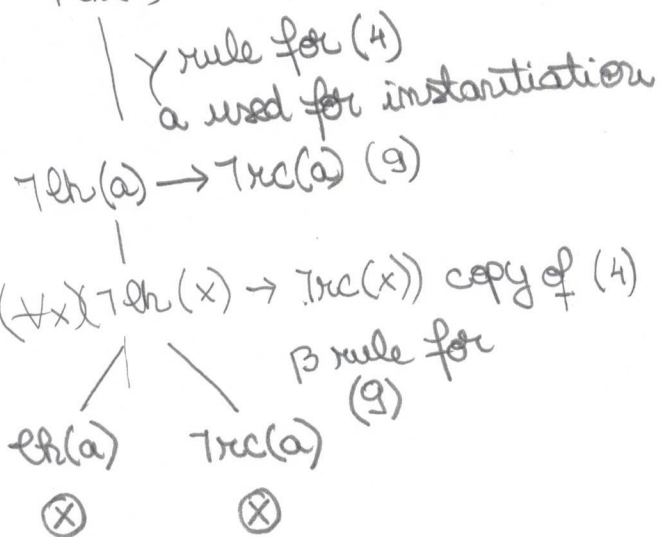 γ rule for (4)
a used for instantiation
¬lh(a) → ¬rc(a) (9)
(∀x)(¬lh(x) → ¬rc(x)) copy of (4)
β rule for
(9)
lh(a) ¬rc(a)
ⓧ ⓧ